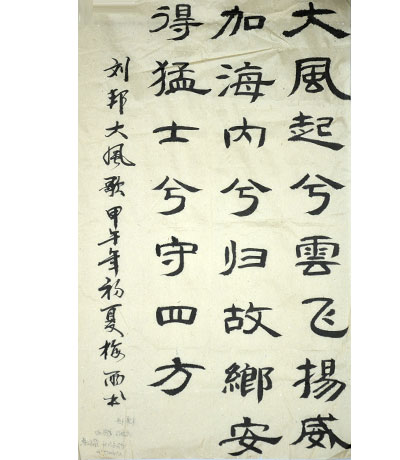 大風起兮雲飞揚威
加海内兮归故鄉安
得猛士兮守四方
刘邦大風歌甲午年初夏梅西书